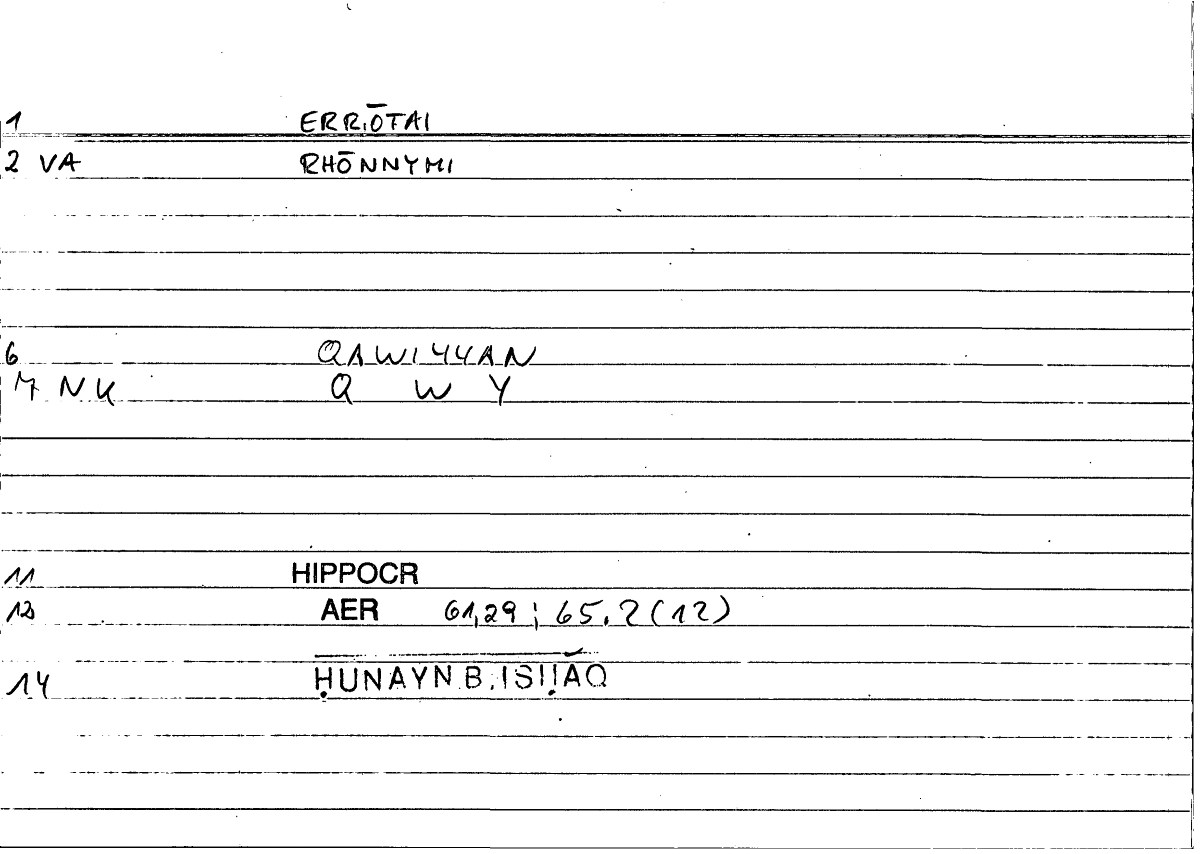 1 ERRŌTAI
2 VA RHŌNNYMI
6 QAWIYYAN
7 NK Q W Y
11 HIPPOCR
13 AER 61,29; 65,2(12)
14 ḤUNAYN B. ISḤĀQ